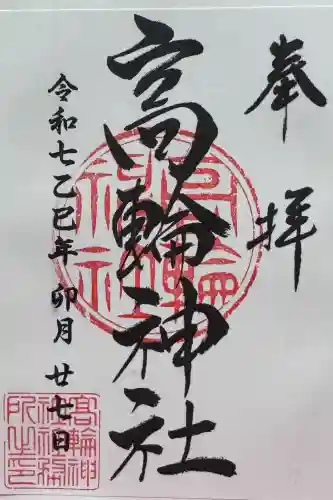 奉拝
高輪神社
令和七乙巳年卯月廿七日
高輪神社
高輪神
社社務
所之印